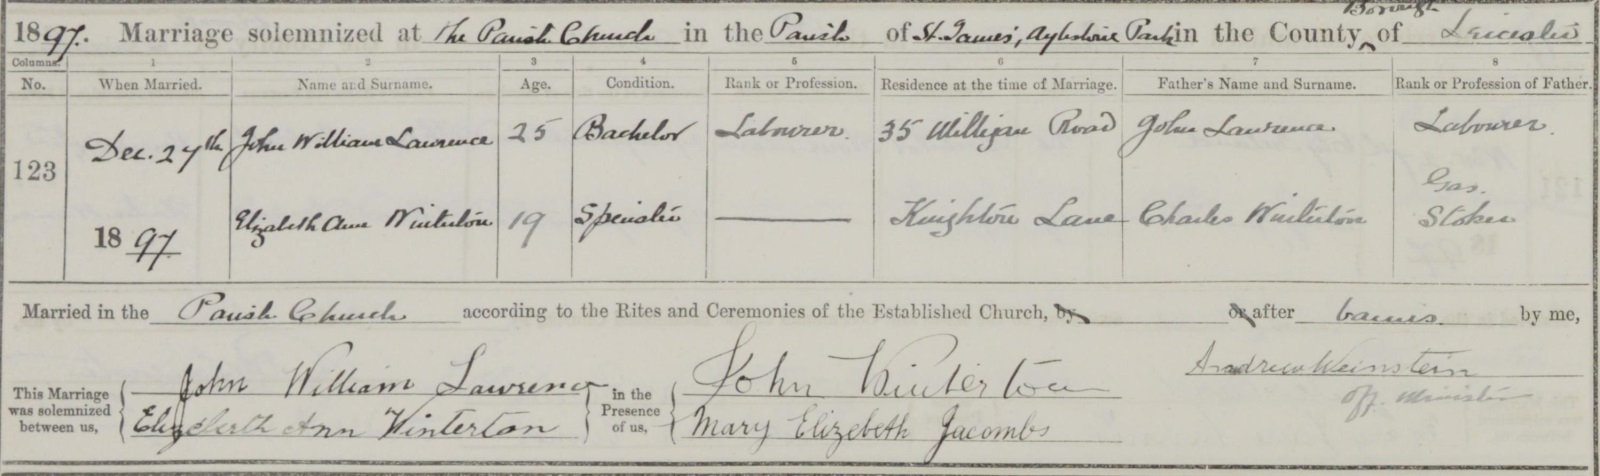 1897. Marriage solemnized at the Parish Church in the Parish of St. James', Aylestone Park in the County Borough of Leicester
Columns: 1 2 3 4 5 6 7 8
No. When Married. Name and Surname. Age. Condition. Rank or Profession. Residence at the time of Marriage. Father's Name and Surname. Rank or Profession of Father.
123 Dec. 27th 1897. John William Lawrence 25 Bachelor Labourer. 35 Milligan Road John Lawrence Labourer.
Elizabeth Ann Winterton 19 Spinster Knighton Lane Charles Winterton Gas. Stoker
Married in the Parish Church according to the Rites and Ceremonies of the Established Church, by or after banns. by me,
This Marriage was solemnized between us, John William Lawrence in the Presence of us, John Winterton Andrew Weinstein
Elizebeth Ann Winterton Mary Elizebeth Jacombs Off. Minister